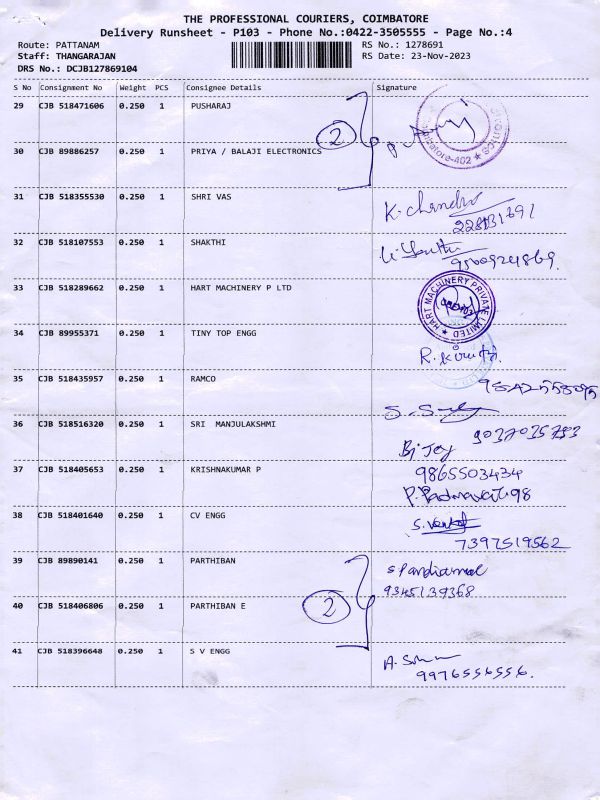 THE PROFESSIONAL COURIERS, COIMBATORE
Delivery Runsheet - P103 - Phone No.:0422-3505555 - Page No.:4
Route: PATTANAM RS No.: 1278691
Staff: THANGARAJAN RS Date: 23-Nov-2023
DRS No.: DCJB127869104
S No Consignment No Weight PCS Consignee Details Signature
29 CJB 518471606 0.250 1 PUSHARAJ
2
30 CJB 89886257 0.250 1 PRIYA / BALAJI ELECTRONICS
31 CJB 518355530 0.250 1 SHRI VAS K. Chandra
32 CJB 518107553 0.250 1 SHAKTHI
33 CJB 518289662 0.250 1 HART MACHINERY P LTD HART MACHINERY PRIVATE LIMITED
34 CJB 89955371 0.250 1 TINY TOP ENGG
35 CJB 518435957 0.250 1 RAMCO
36 CJB 518516320 0.250 1 SRI MANJULAKSHMI
37 CJB 518405653 0.250 1 KRISHNAKUMAR P 9865503434
38 CJB 518401640 0.250 1 CV ENGG
7397519562
39 CJB 89890141 0.250 1 PARTHIBAN
9345139368
40 CJB 518406806 0.250 1 PARTHIBAN E
2
41 CJB 518396648 0.250 1 S V ENGG
9976556556.